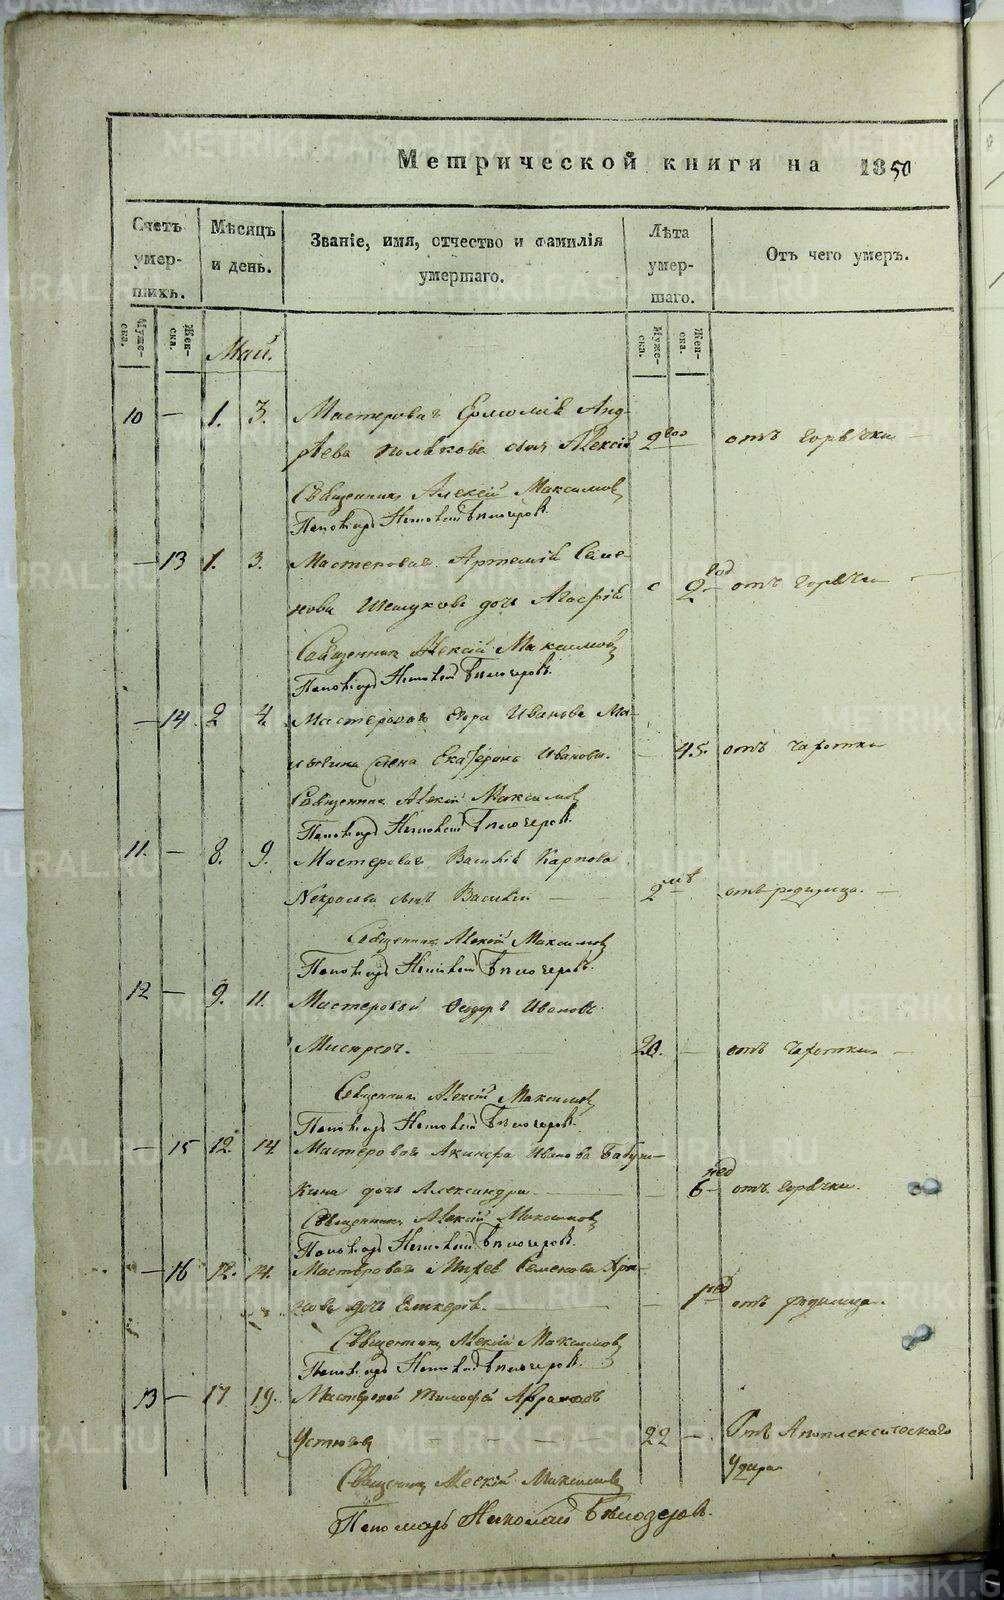 Метрической книги на 1850
Счетъ умер-шихъ.
Мѣсяцъ и день.
Званіе, имя, отчество и фамилія умершаго.
Лѣта умер-шаго.
Отъ чего умеръ.
Муже-ска.
Жен-ска.
Муже-ска.
Жен-ска.
Май.
10 — 1. 3. Мастероваго Ермолая Анд-
рѣева Полякова сынъ Алексій 2 год отъ горячки —
Священникъ Алексій Максимов
Пономарь Николай Бѣлозеровъ.
— 13 1. 3. Мастероваго Артемія Семе-
нова дочь 2 год отъ горячки —
Священникъ Алексій Максимов
Пономарь Николай Бѣлозеровъ.
— 14. 2 4. Мастероваго Егора Иванова
жена Екатерина Иванова. — 45. отъ чахотки
Священникъ Алексій Максимов
Пономарь Николай Бѣлозеровъ.
11. — 8. 9. Мастероваго Василія Карпова
Некрасова сынъ Василій — — 2 отъ родимца. —
Священникъ Алексій Максимов
Пономарь Николай Бѣлозеровъ.
12 — 9. 11. Мастеровой Ѳедоръ Ивановъ
20. — отъ чахотки —
Священникъ Алексій Максимов
Пономарь Николай Бѣлозеровъ.
— 15 12. 14. Мастероваго Акинфа Иванова Бабуш-
кина дочь Александра — — 6 нед отъ горячки.
Священникъ Алексій Максимов
Пономарь Николай Бѣлозеровъ.
— 16 12. 14. Мастероваго Семенова
дочь — — 1 нед отъ родимца.
Священникъ Алексій Максимов
Пономарь Николай Бѣлозеровъ.
13 — 17 19. Мастеровой Тимофей
— — — 22 — Отъ Апоплексическаго
удара
Священникъ Алексій Максимов
Пономарь Николай Бѣлозеровъ.
METRIKI.GASO-URAL.RU